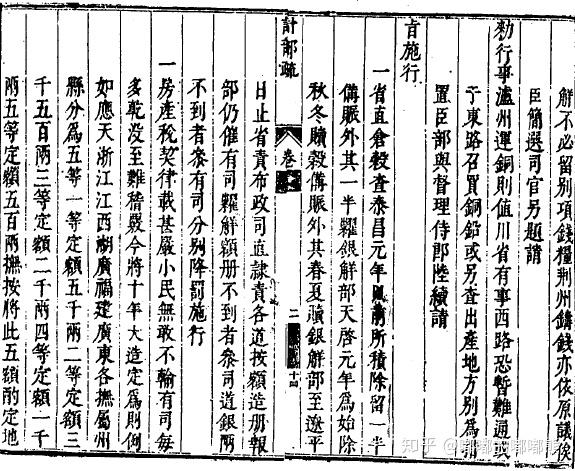 解不必留别項錢糧荆州鑄錢亦依原議俟
臣簡選司官另題請
勑行事瀘州運銅則值川省有事西路恐暫難通或
于東路召買銅鉛或另查出產地方别為
置臣部與督理侍郎陸續請
旨施行
一省直倉穀查泰昌元年以前所積除留一半
備賑外其一半糶銀解部天啓元年為始除
秋冬贖穀備賑外其春夏贖銀解部至遼平
計部疏
卷
二
日止省責布政司直隷責各道按額造册報
部仍催有司糶解額册不到者叅司道銀兩
不到者叅有司分别降罰施行
一房產稅契律載甚嚴小民無敢不輸有司每
多乾没至難稽嚴今將十年大造定為則例
如應天浙江江西湖廣福建廣東各撫屬州
縣分為五等一等定額五千兩二等定額三
千五百兩三等定額二千兩四等定額一千
兩五等定額五百兩撫按將此五額酌定地
知乎